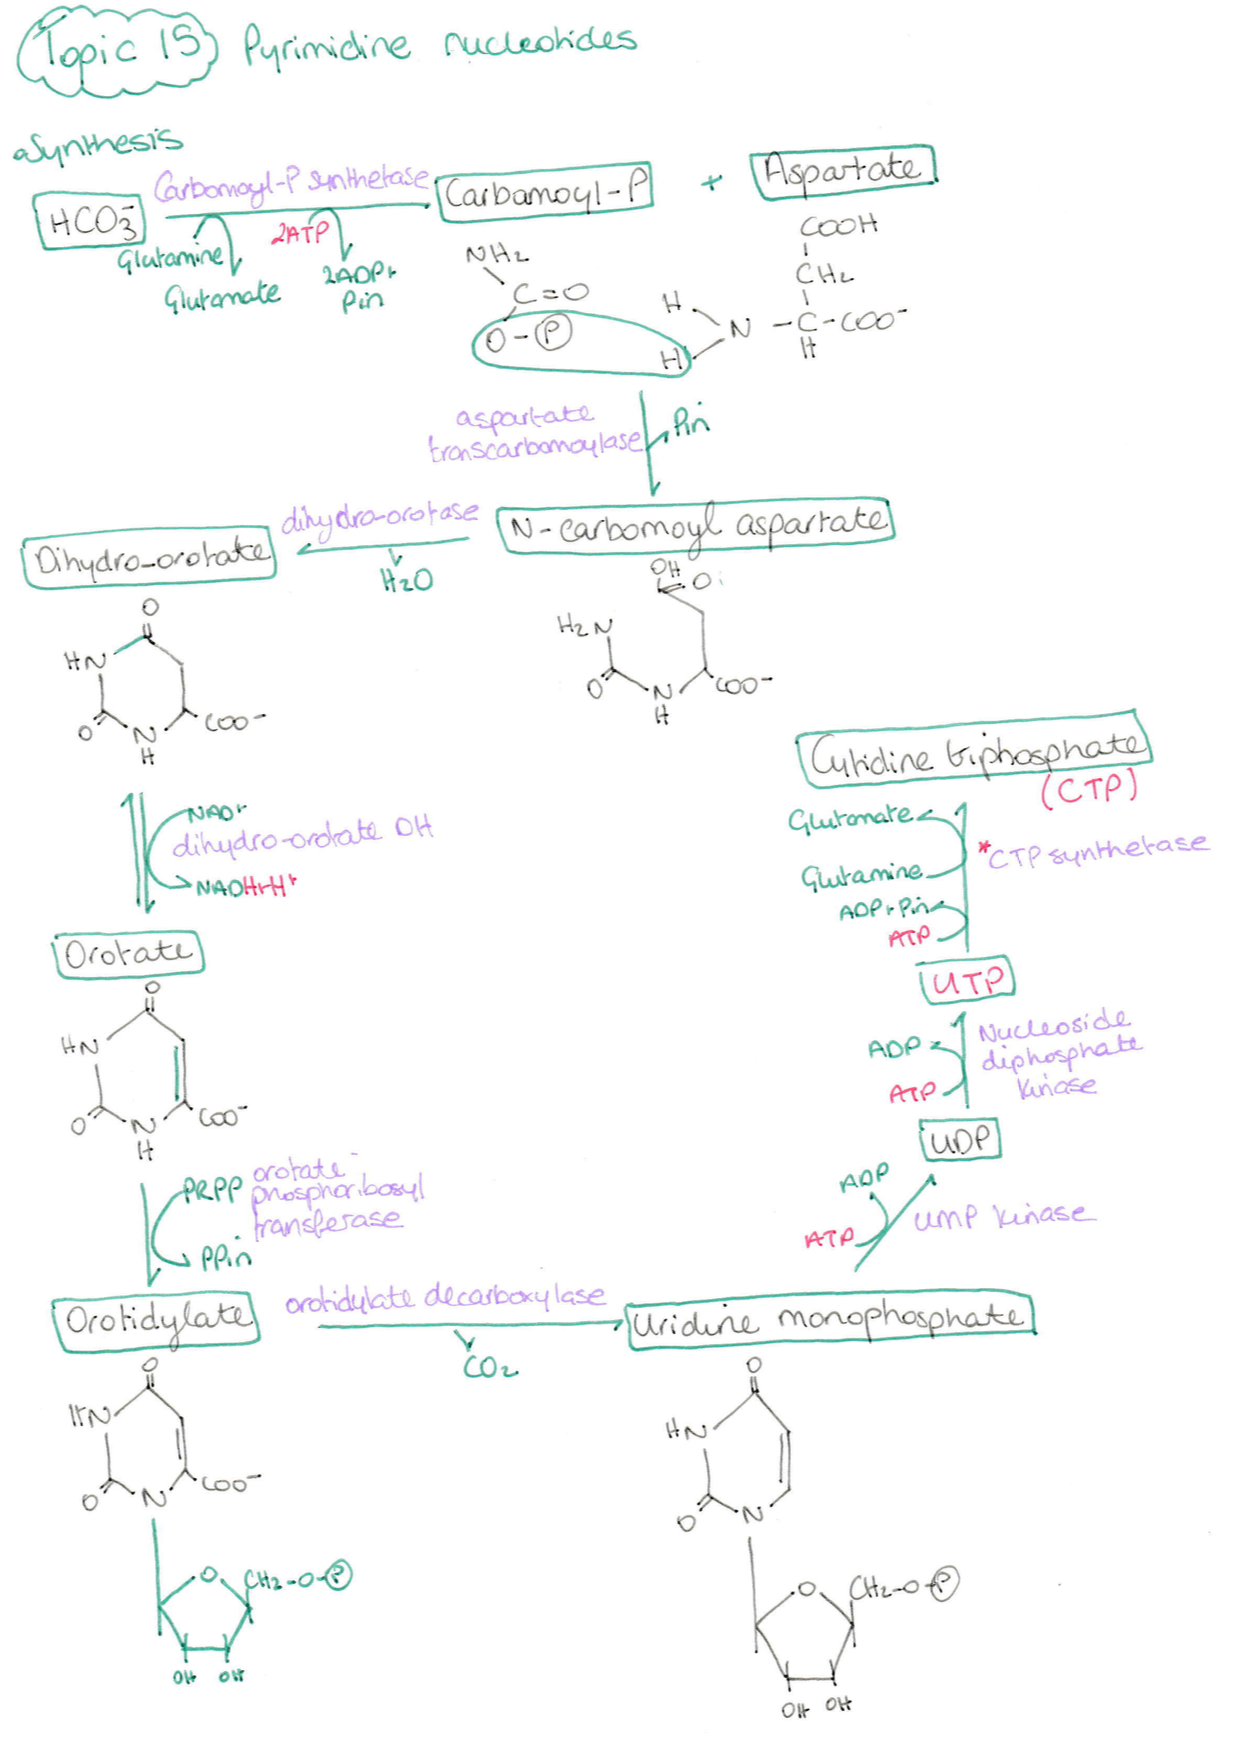 Topic 15 Pyrimidine nucleotides
Synthesis
HCO3-
Carbomoyl-P synthetase
Glutamine
Glutamate
2ATP
2ADP+
Pin
Carbamoyl-P
+
Aspartate
NH2
C=O
O-P
COOH
CH2
H
N-C-COO-
H
H
aspartate
transcarbomoylase
Pin
N-carbomoyl aspartate
dihydro-orotase
H2O
Dihydro-orotate
OH
O
H2N
O
N
H
COO-
O
HN
O
N
H
COO-
NAD+
dihydro-orotate DH
NADH+H+
Orotate
O
HN
O
N
H
COO-
PRPP
orotate
phosphoribosyl
transferase
PPin
Orotidylate
O
HN
O
N
COO-
O
CH2-O-P
OH OH
orotidylate decarboxylase
CO2
Uridine monophosphate
O
HN
O
N
O
CH2-O-P
OH OH
ATP
ADP
UMP kinase
UDP
ATP
ADP
Nucleoside
diphosphate
kinase
UTP
ATP
ADP+Pin
Glutamine
Glutamate
*CTP synthetase
Cytidine triphosphate
(CTP)